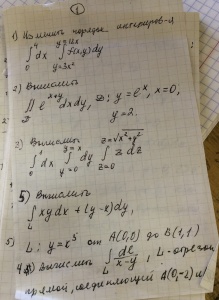 ①
1) Изменить порядок интегриров-я
∫₀⁴ dx ∫_{y=3x²}^{y=12x} f(x,y)dy
2) Вычислить
∬_D e^{x+y} dxdy, D: y = eˣ, x=0,
y=2.
3) Вычислить z=√x²+y²
∫₀ dx ∫_{y=0}^{y=x} dy ∫_{z=0} z dz
5) Вычислить
∫_L xydx + (y-x)dy,
L: y=x⁵ от A(0,0) до B(1,1)
4) Вычислить ∫_L dl/(x-y), L-отрезок
прямой, соединяющий A(0,-2) и